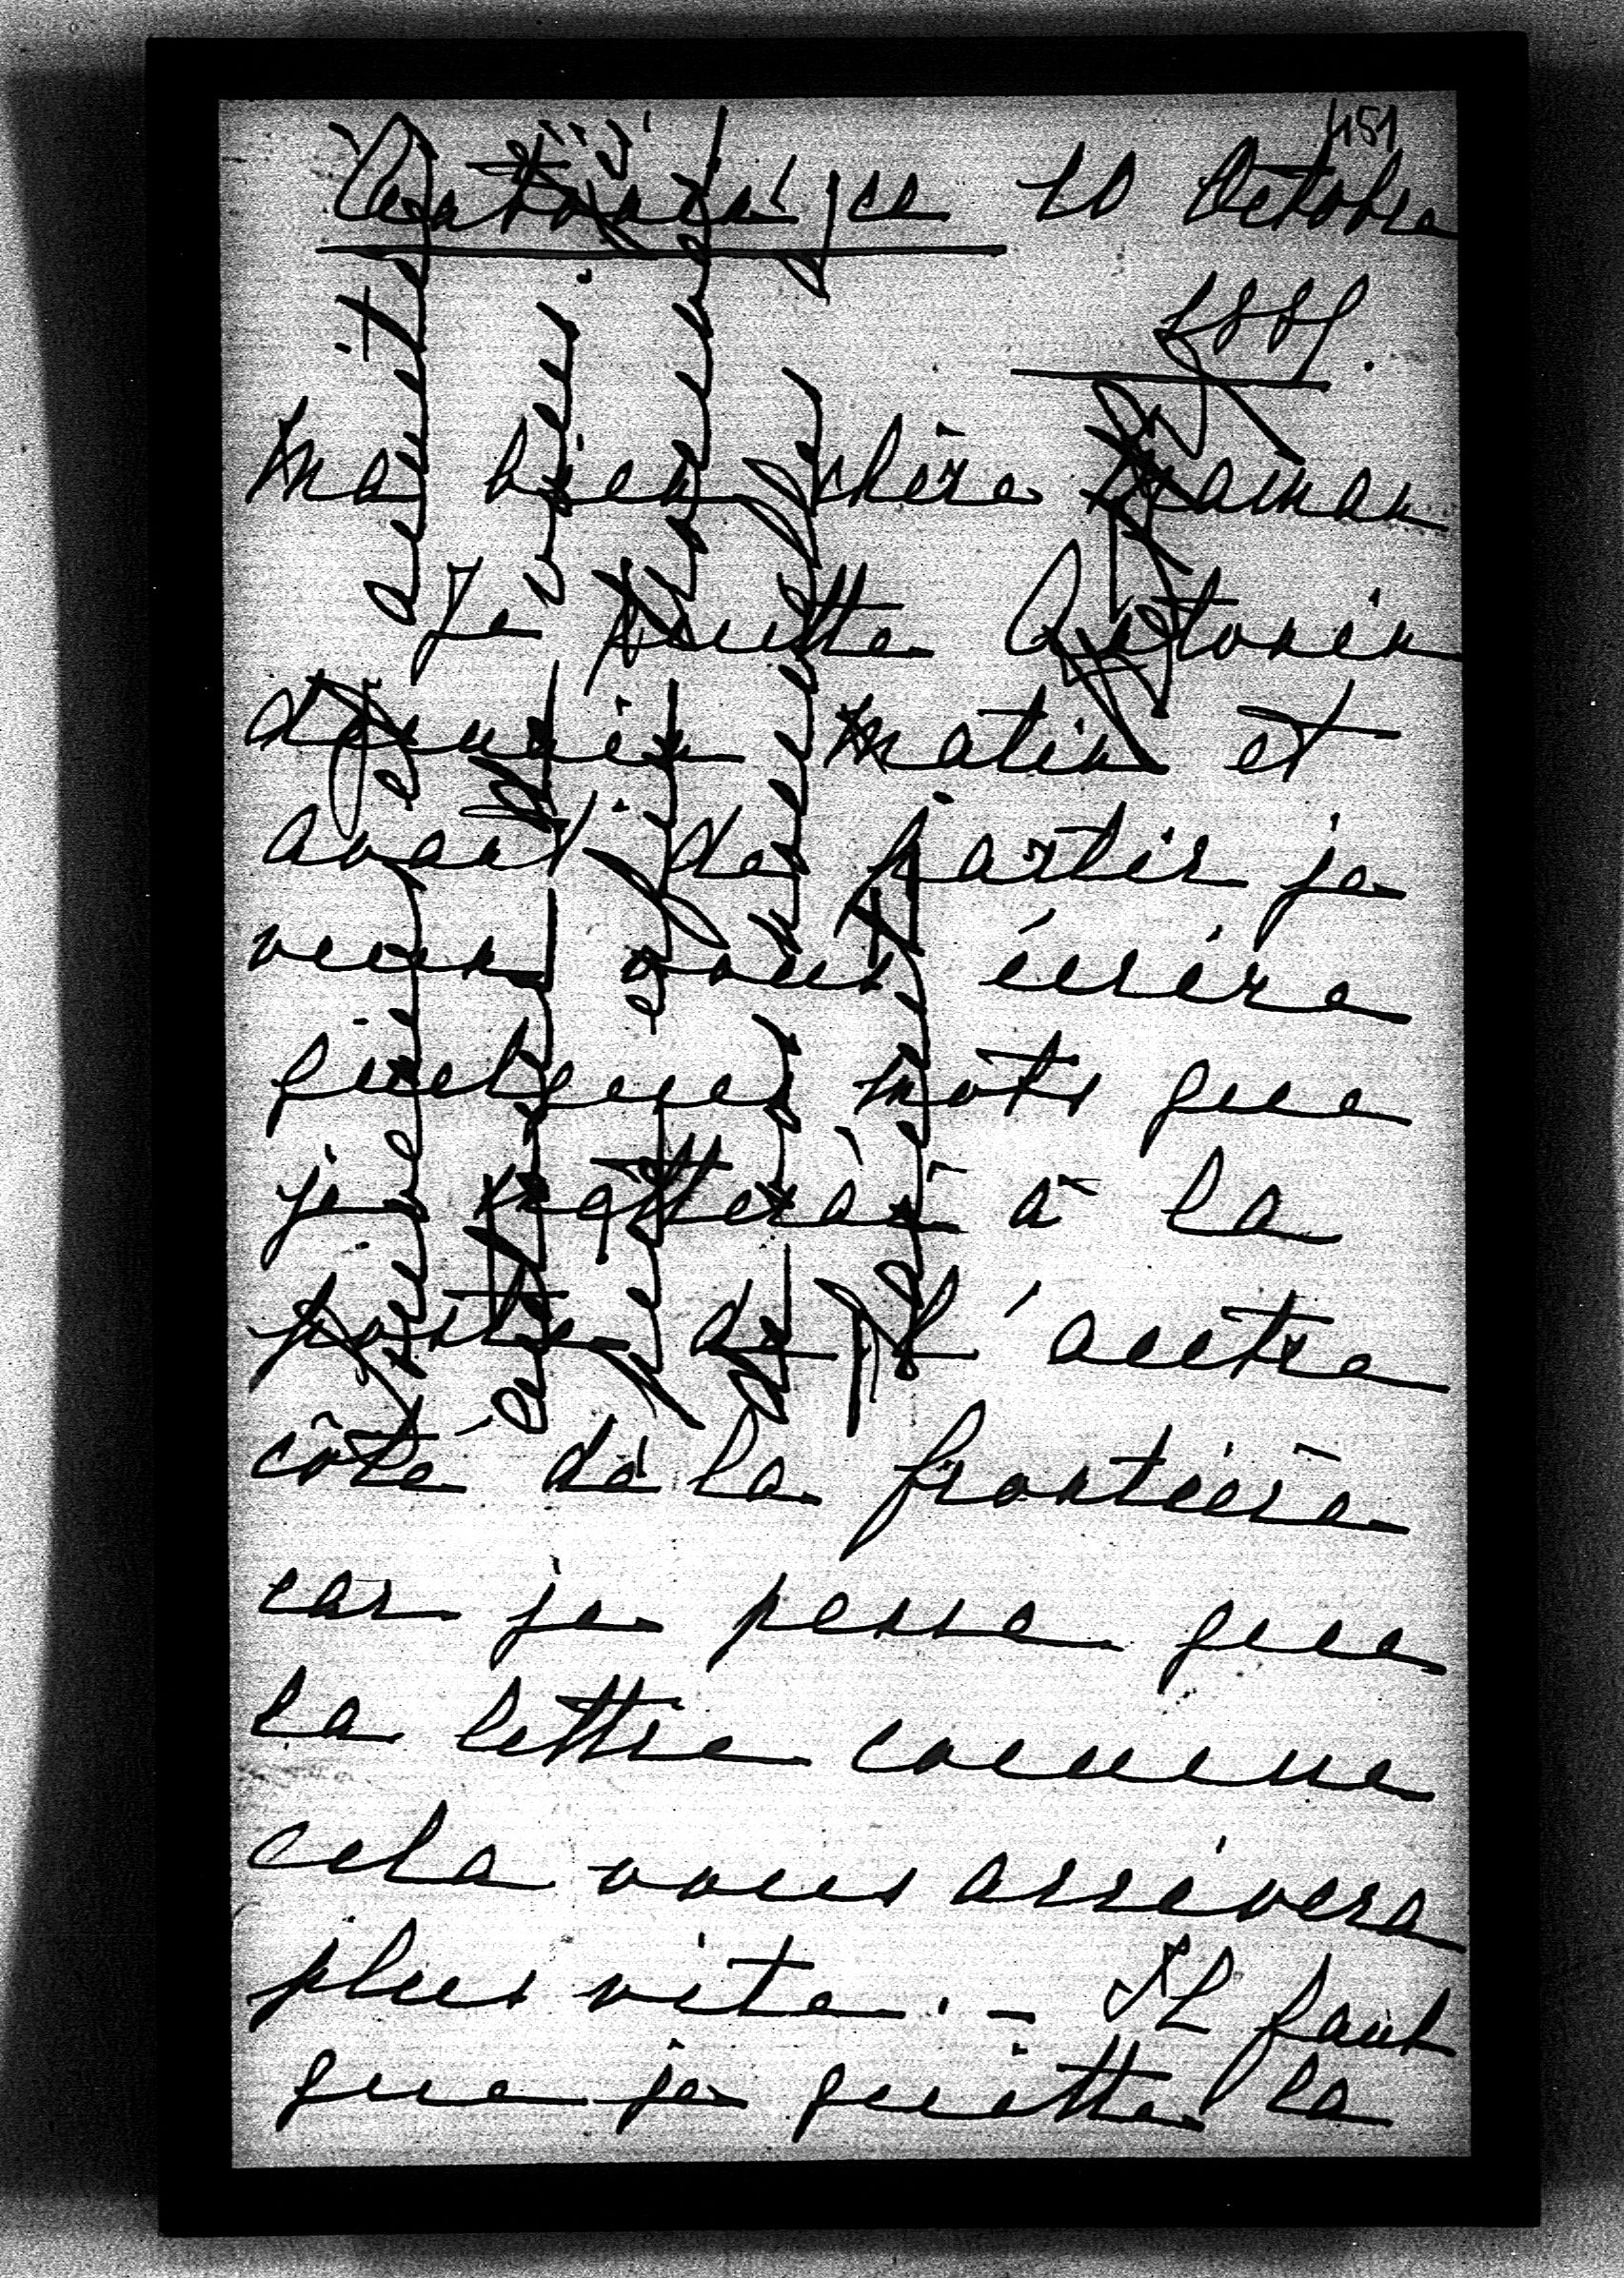 451
Antonin, ce 10 Octobre
1889.
Ma bien chère Maman
Je quitte Antonin
demain matin et
avant de partir je
veux vous écrire
quelques mots que
je mettrai à la
poste de l'autre
côté de la frontière
car je pense que
la lettre comme
cela vous arrivera
plus vite. – Il faut
que je quitte la